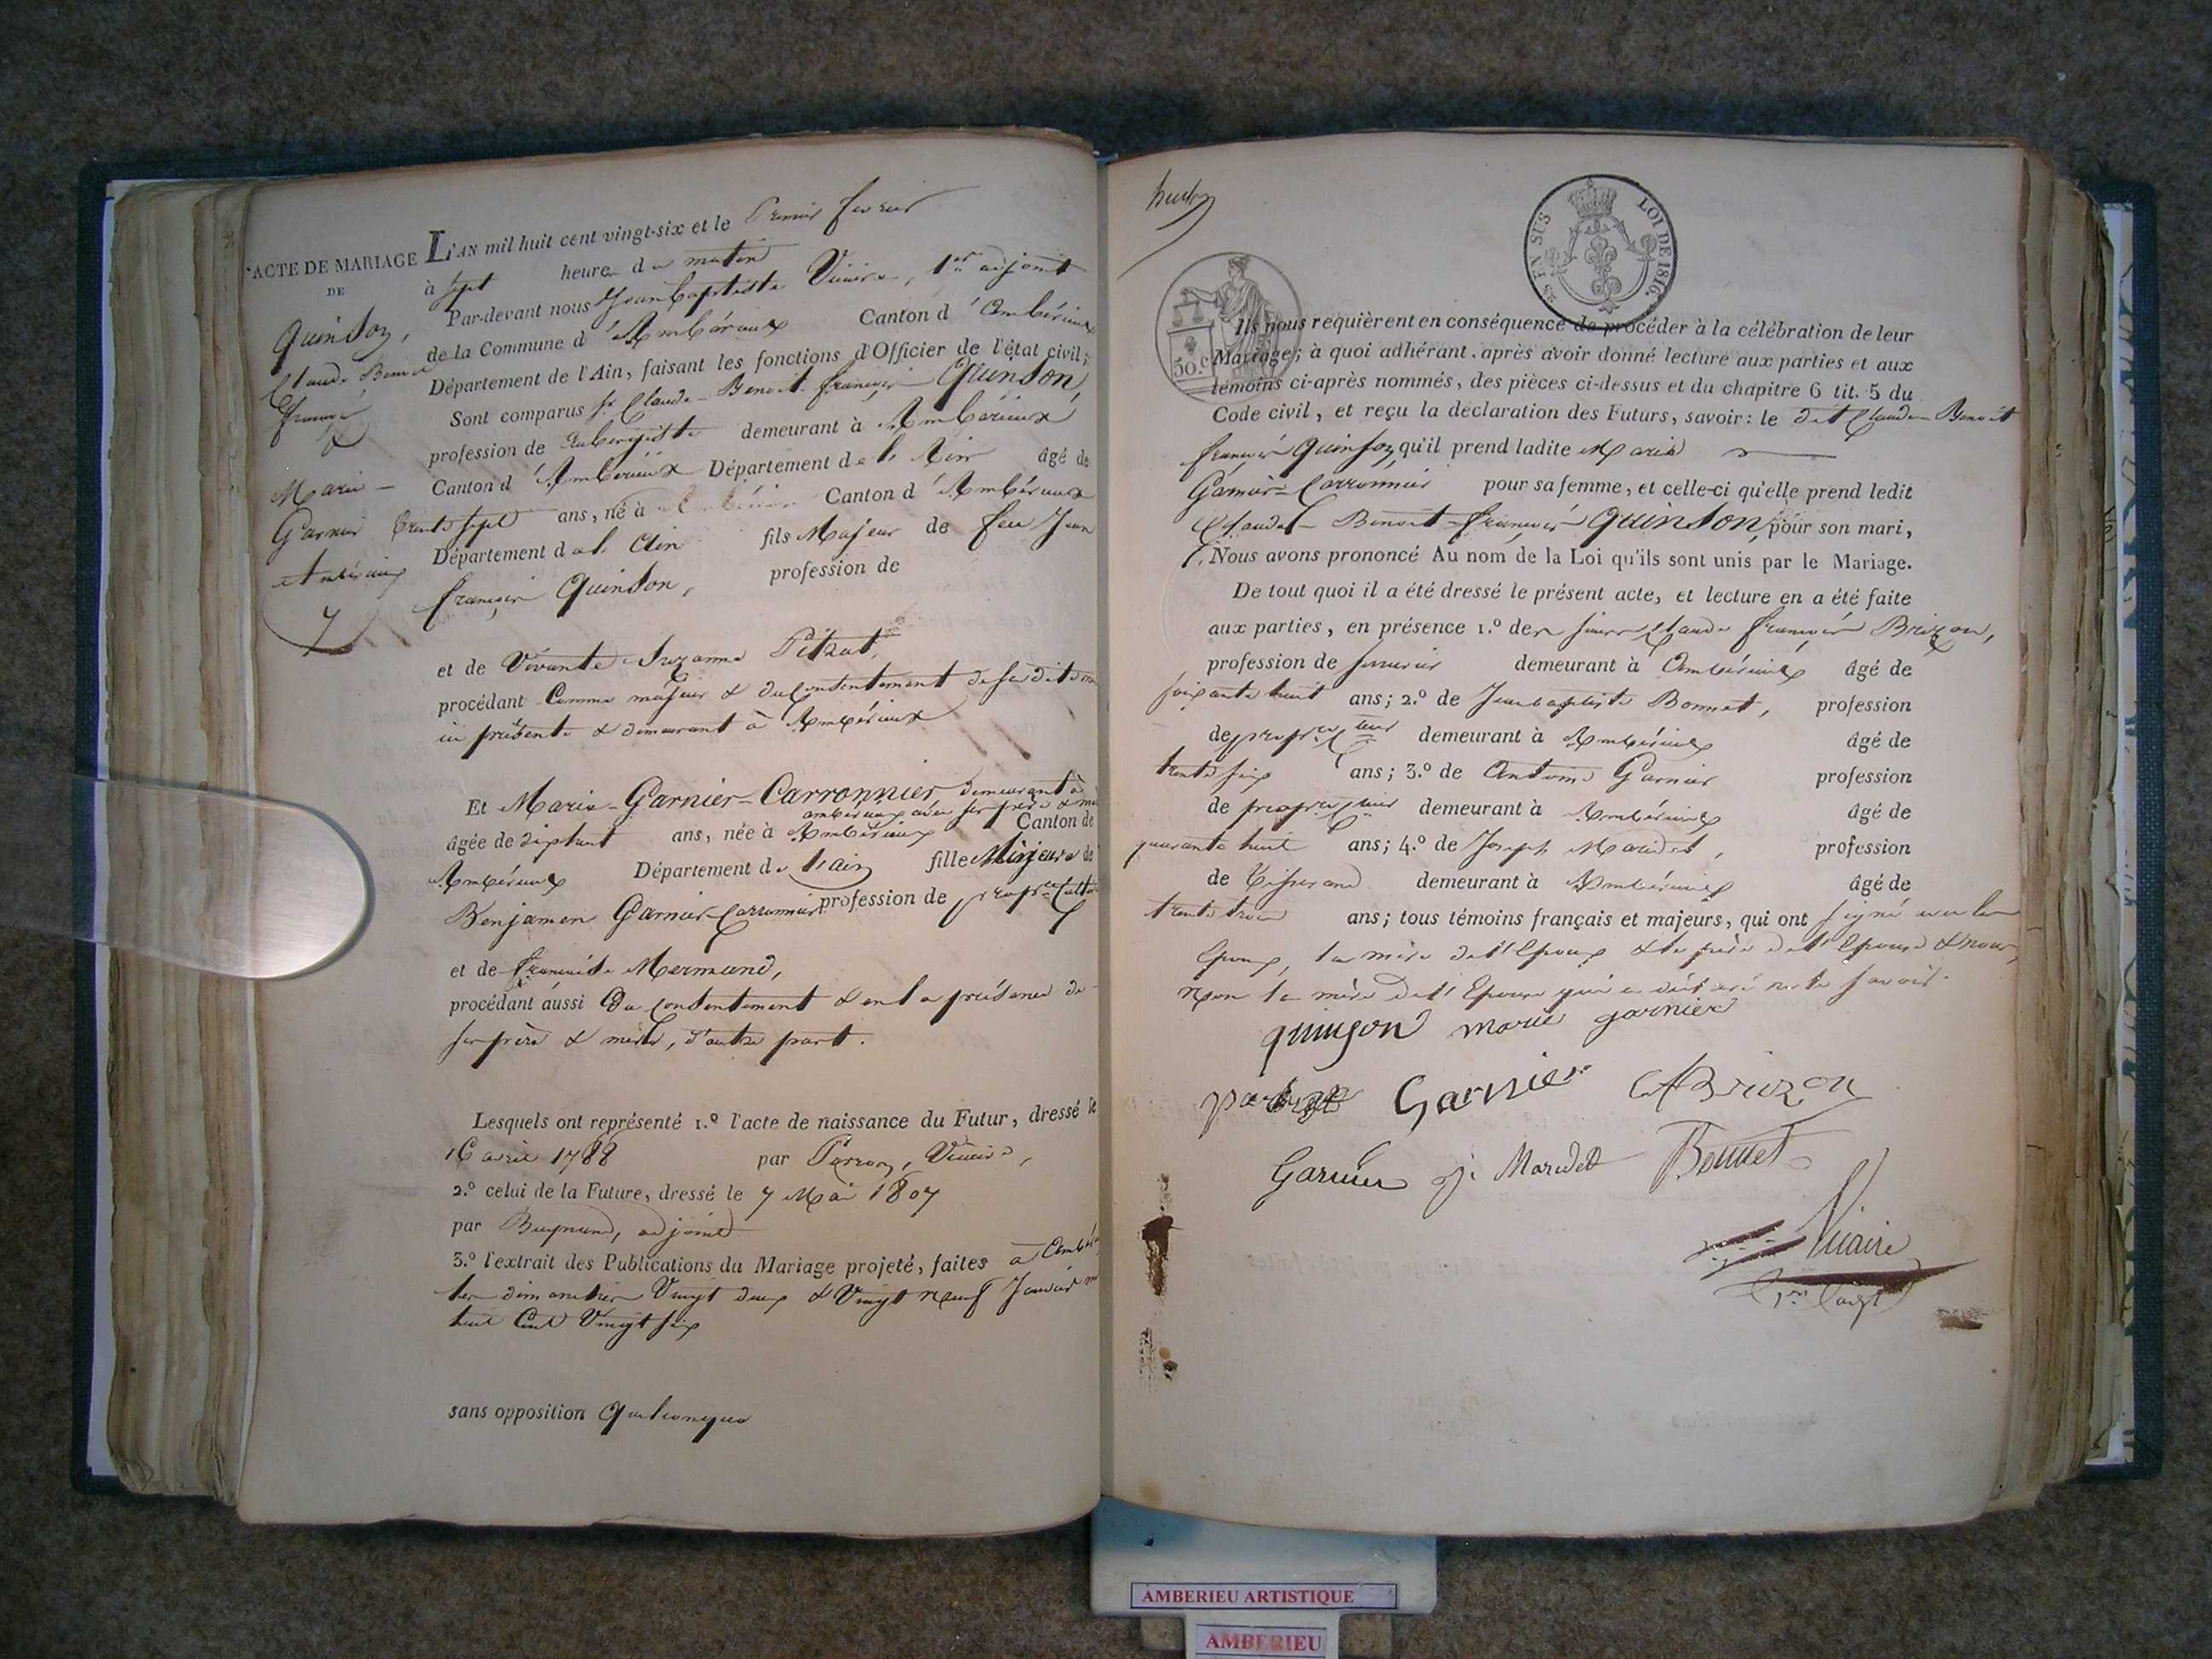 ACTE DE MARIAGE
DE
Quinson,
Claude Benoit
françois
&
Marie
Garnier
Ambérieux
7
L'AN mil huit cent vingt-six et le Premier fevrier
à sept heures du matin
Par-devant nous Jean baptiste Vicaire, 1er adjoint
de la Commune d'Ambérieux Canton d'Ambérieux
Département de l'Ain, faisant les fonctions d'Officier de l'état civil;
Sont comparus Sr Claude-Benoit-françois Quinson,
profession de Aubergiste demeurant à Ambérieux
Canton d'Ambérieux Département de l'Ain âgé de
trente sept ans, né à Ambérieux Canton d'Ambérieux
Département de l'Ain fils Majeur de feu Jean
françois Quinson, profession de
et de Vivante Suzanne Pitrat,
procédant Comme majeur & du Consentement de sa dite
ici présente & demeurant à Ambérieux
Et Marie-Garnier-Carronnier demeurant à
ambérieux avec ses père &
âgée de dix huit ans, née à Ambérieux Canton de
Ambérieux Département de l'ain fille Mineure de
Benjamin Garnier-Carronnier profession de
et de françoise Mermand,
procédant aussi Du consentement & en la présence de
ses père & mère, d'autre part.
Lesquels ont représenté 1.º l'acte de naissance du Futur, dressé le
16 avril 1788 par Perron, Vicaire,
2.º celui de la Future, dressé le 7 Mai 1807
par adjoint
3.º l'extrait des Publications du Mariage projeté, faites à
les dimanches Vingt deux & Vingt neuf Janvier
huit Cent Vingt six
sans opposition Quelconque
25 EN SUS LOI DE 1816.
50.c
Ils nous requièrent en conséquence de procéder à la célébration de leur
Mariage; à quoi adhérant, après avoir donné lecture aux parties et aux
témoins ci-après nommés, des pièces ci-dessus et du chapitre 6 tit. 5 du
Code civil, et reçu la déclaration des Futurs, savoir: le dit Claude-Benoit
françois Quinson, qu'il prend ladite Marie
Garnier-Carronnier pour sa femme, et celle-ci qu'elle prend ledit
Claude-Benoit-françois Quinson, pour son mari,
Nous avons prononcé Au nom de la Loi qu'ils sont unis par le Mariage.
De tout quoi il a été dressé le présent acte, et lecture en a été faite
aux parties, en présence 1.º des sieurs Claude françois Brizon,
profession de serrurier demeurant à Ambérieux âgé de
soixante huit ans; 2.º de Jean baptiste Bonnet, profession
de demeurant à Ambérieux âgé de
trente six ans; 3.º de Antoine Garnier profession
de demeurant à Ambérieux âgé de
quarante huit ans; 4.º de Joseph Maridet, profession
de Tisserand demeurant à Ambérieux âgé de
trente trois ans; tous témoins français et majeurs, qui ont signé avec les
Epoux, la mère de l'Epoux & le père de l'Epouse & nous,
non la mère de l'Epouse qui a déclaré ne le savoir.
quinson marie garnier
Garnier Brizon
Garnier j. Maridet Bonnet
Vicaire
AMBERIEU ARTISTIQUE
AMBERIEU